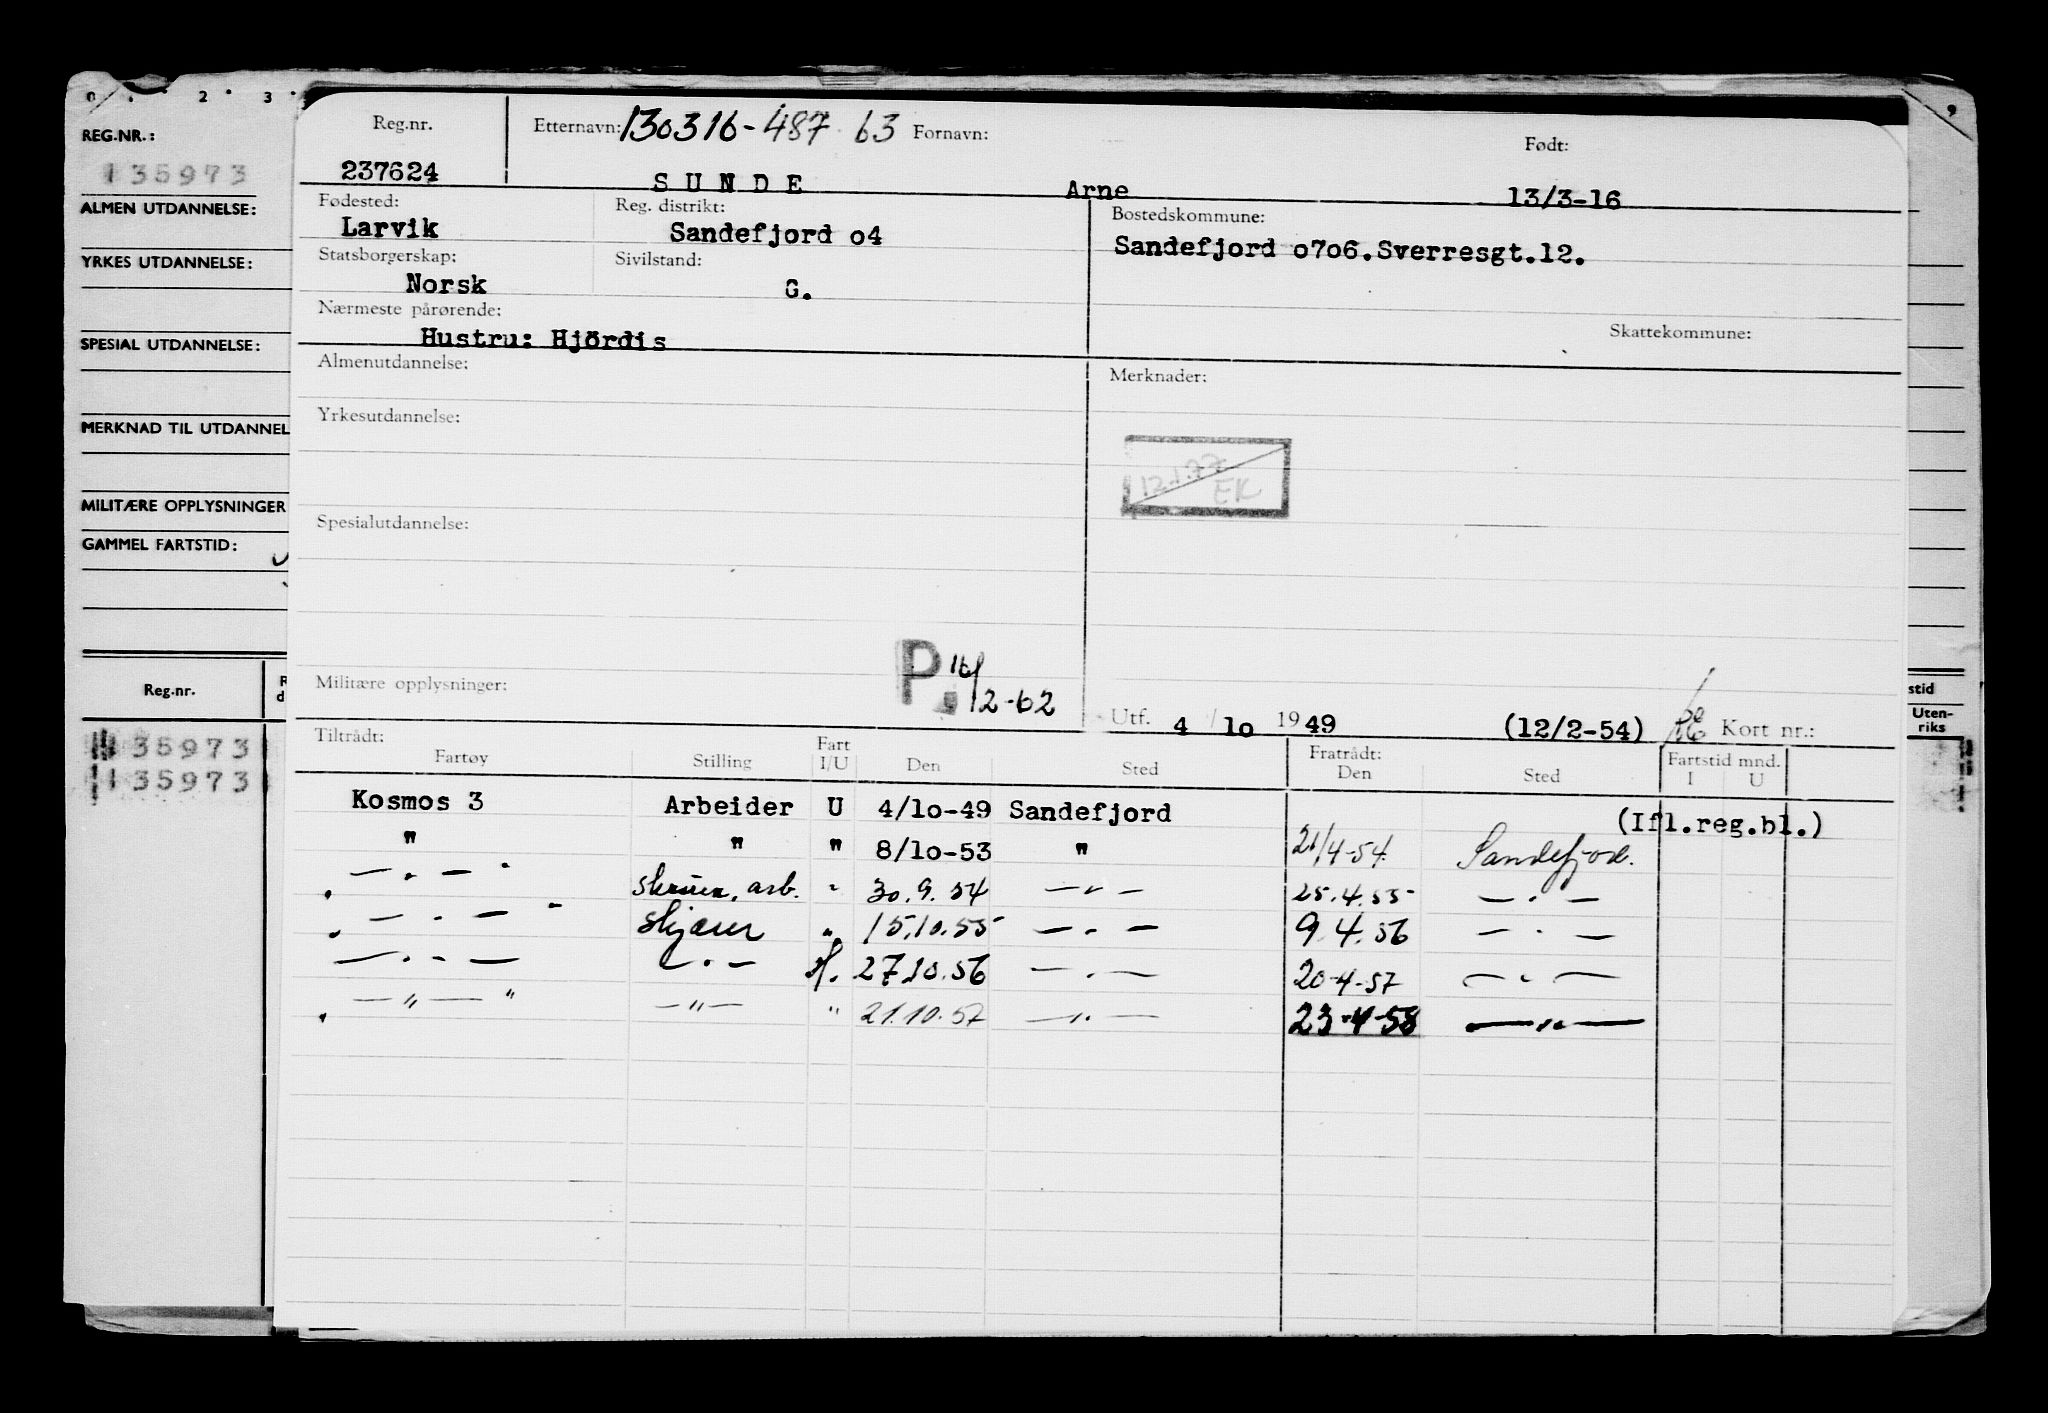 0 . 2 . 3 . 9
REG.NR.:
135973
ALMEN UTDANNELSE:
YRKES UTDANNELSE:
SPESIAL UTDANNELSE:
MERKNAD TIL UTDANNEL
MILITÆRE OPPLYSNINGER
GAMMEL FARTSTID:
Reg.nr.
135973
135973
stid
Uten-
riks
Reg.nr. Etternavn: 130316-487 63 Fornavn: Født:
237624 SUNDE Arne 13/3-16
Fødested: Reg. distrikt: Bostedskommune:
Larvik Sandefjord o4 Sandefjord o7o6.Sverresgt.12.
Statsborgerskap: Sivilstand:
Norsk G.
Nærmeste pårørende: Skattekommune:
Hustru: Hjördis
Almenutdannelse: Merknader:
Yrkesutdannelse:
12.1.77
EK
Spesialutdannelse:
P. 16/12-62
Militære opplysninger: Utf. 4 / 1o 1949 (12/2-54) Kort nr.:
Tiltrådt: Fratrådt: Fartstid mnd.
Fartøy Stilling Fart I/U Den Sted Den Sted I U
Kosmos 3 Arbeider U 4/1o-49 Sandefjord (Ifl.reg.bl.)
" " " 8/1o-53 " 21/4-54 Sandefjord.
— " — " arb. " 30.9.54 — " — 25.4.55 — " —
— " — " skjærer " 15.10.55 — " — 9.4.56 — " —
— " — — " — H. 27.10.56 — " — 20-4-57 — " —
— " — " — " — " 21.10.57 — " — 23-4-58 — " —